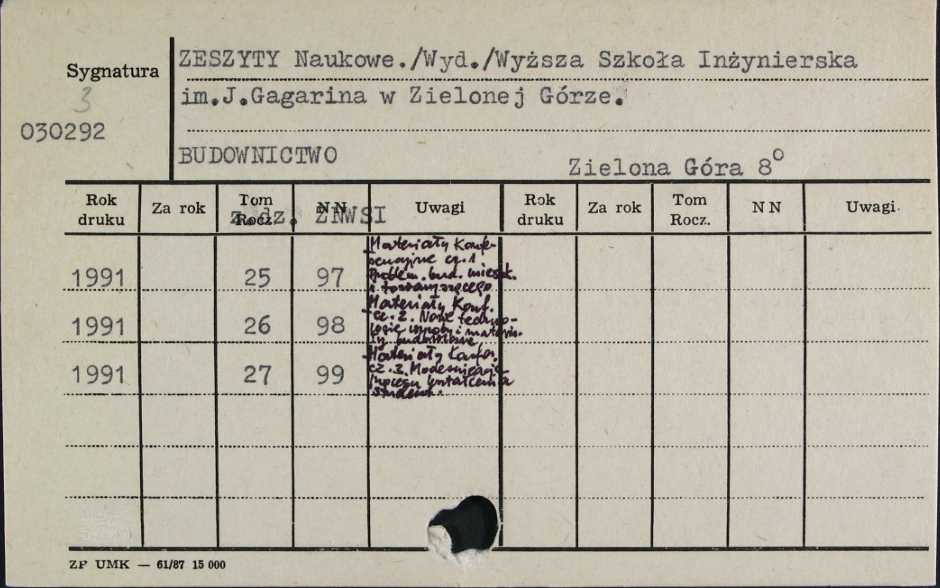 ZESZYTY Naukowe./Wyd./Wyższa Szkoła Inżynierska
Sygnatura
3
im.J.Gagarina w Zielonej Górze.
030292
BUDOWNICTWO
Zielona Góra 8°
Rok druku Za rok Tom Rocz. NN Uwagi Rok druku Za rok Tom Rocz. NN Uwagi
z.dz. ZNWSI
Materiały Konfe-
rencyjne cz. 1
Problem. bud. mieszk.
1991 25 97
i towarzyszącego
Materiały Konf.
cz. 2. Nowe techno-
1991 26 98
logie wyroby i materia-
ły budowlane
Materiały Konfer.
cz. 3. Modernizacja
1991 27 99
procesu kształcenia
student.
ZP UMK — 61/87 15 000